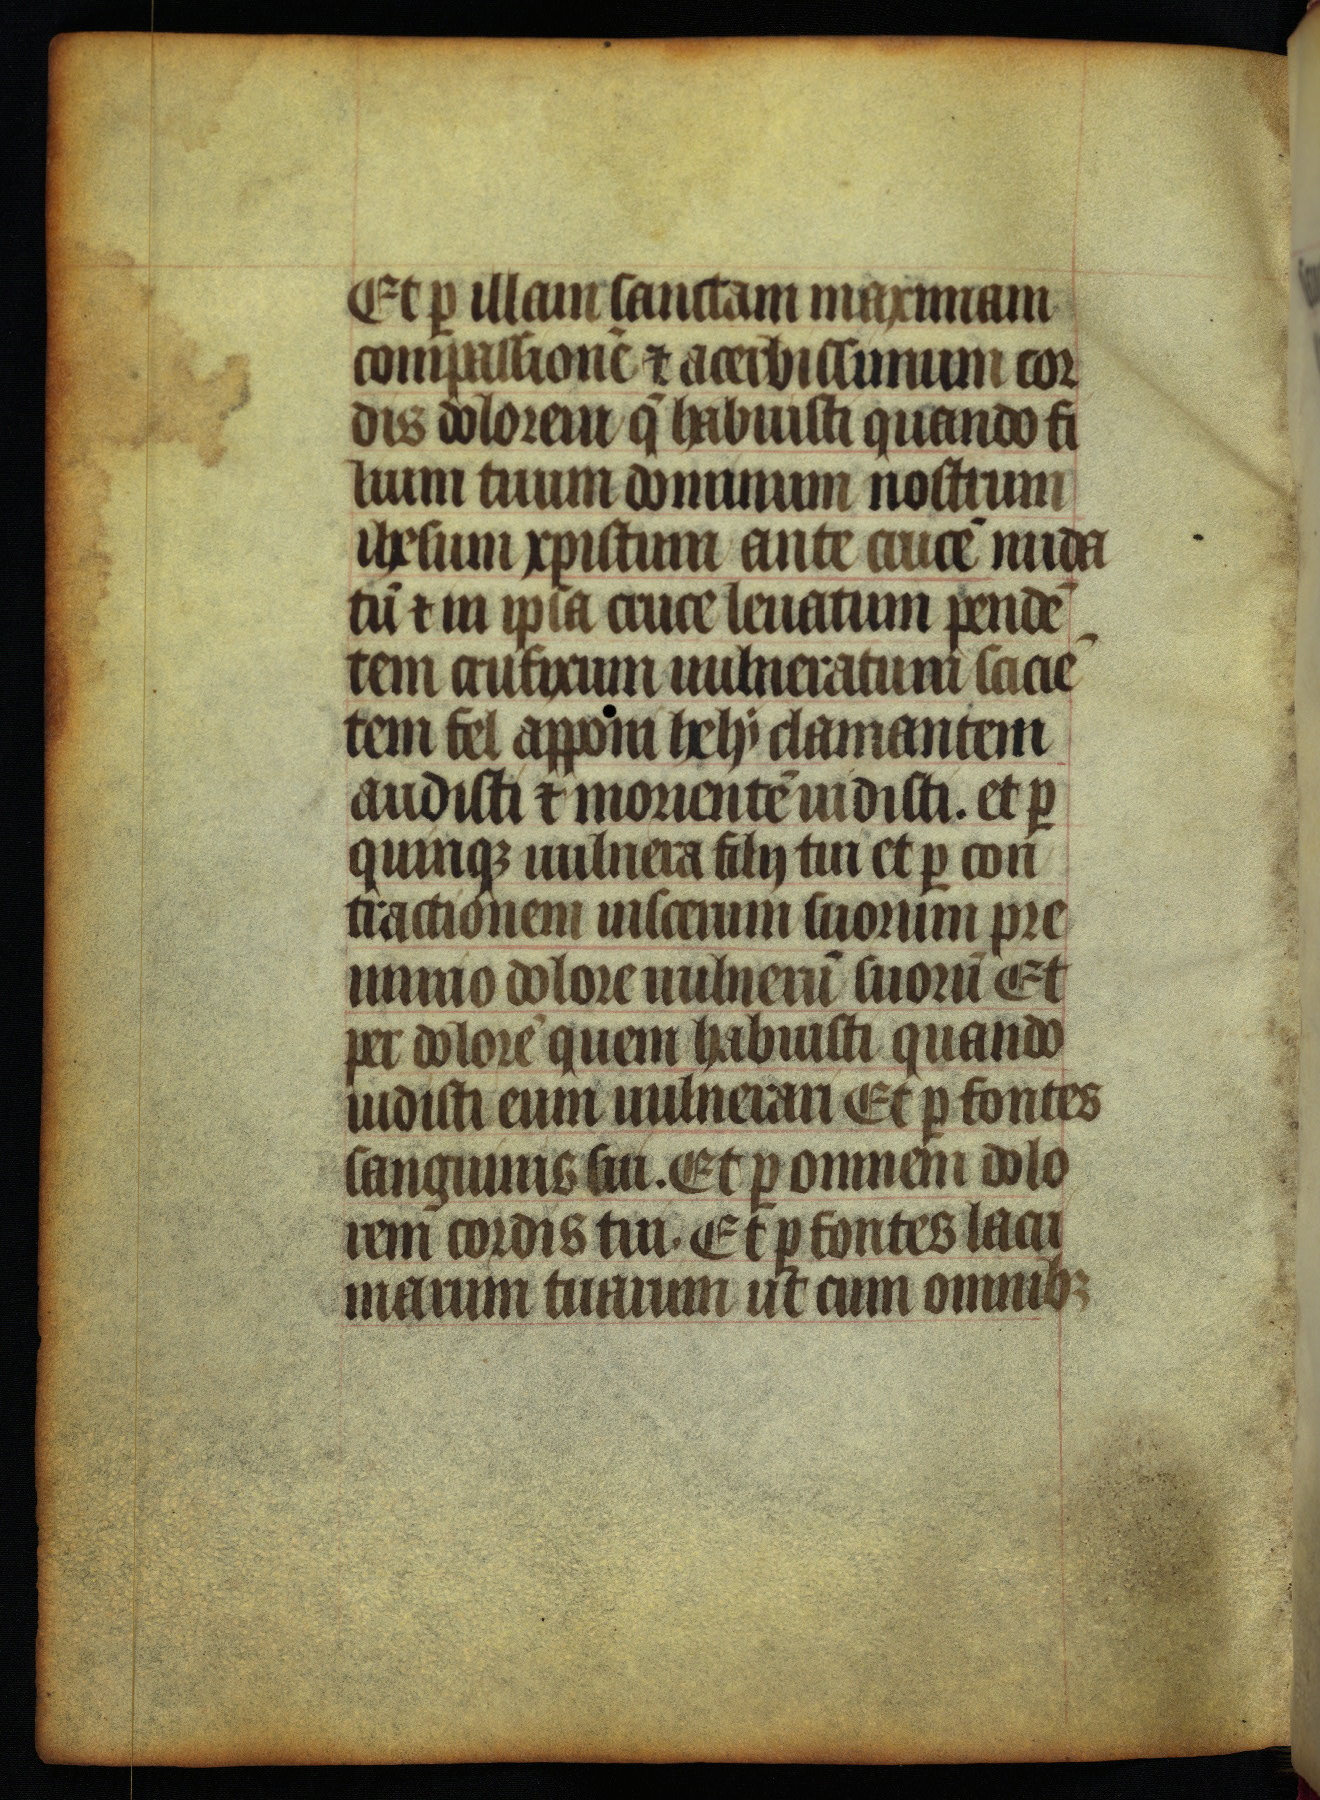 Et ꝑ illam sanctam maximam
compassionē ⁊ acerbissimum cor
dis dolorem q̄ habuisti quando fi
lium tuum dominum nostrum
ihesum xpistum ante crucē nuda
tū ⁊ in ipsa cruce leuatum pendē
tem crufixum uulneratum sciciē
tem fel apponi hely clamantem
audisti ⁊ morientē uidisti. et ꝑ
quinqꝫ uulnera filij tui et ꝑ con
tractionem uiscerum suorum pre
nimio dolore uulnerū suorū Et
per dolorē quem habuisti quando
uidisti eum uulnerari Et ꝑ fontes
sanguinis sui. Et ꝑ omnem dolo
rem cordis tui. Et ꝑ fontes lacri
marum tuarum ut cum omnibꝫ